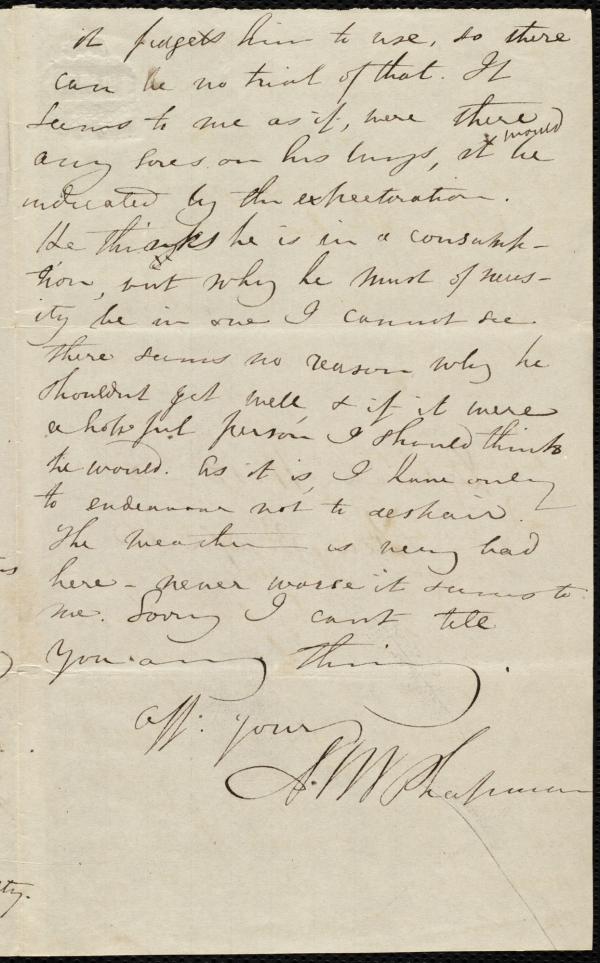 it fidgets him to use, so there
can be no trial of that. It
seems to me as if, were there
any sores on his lungs, it would be
indicated by the expectoration.
He thinks he is in a consump-
tion, but why he must of neces-
ity be in one I cannot see.
There seems no reason why he
shouldn't get well, & if it were
a hopeful person I should think
he would. As it is, I have only
to endeavour not to despair.
The weather is very bad
here - never worse it seems to
me. Sorry I can't tell
you any thing.
aff: yours
A. W. Chapman
ty.